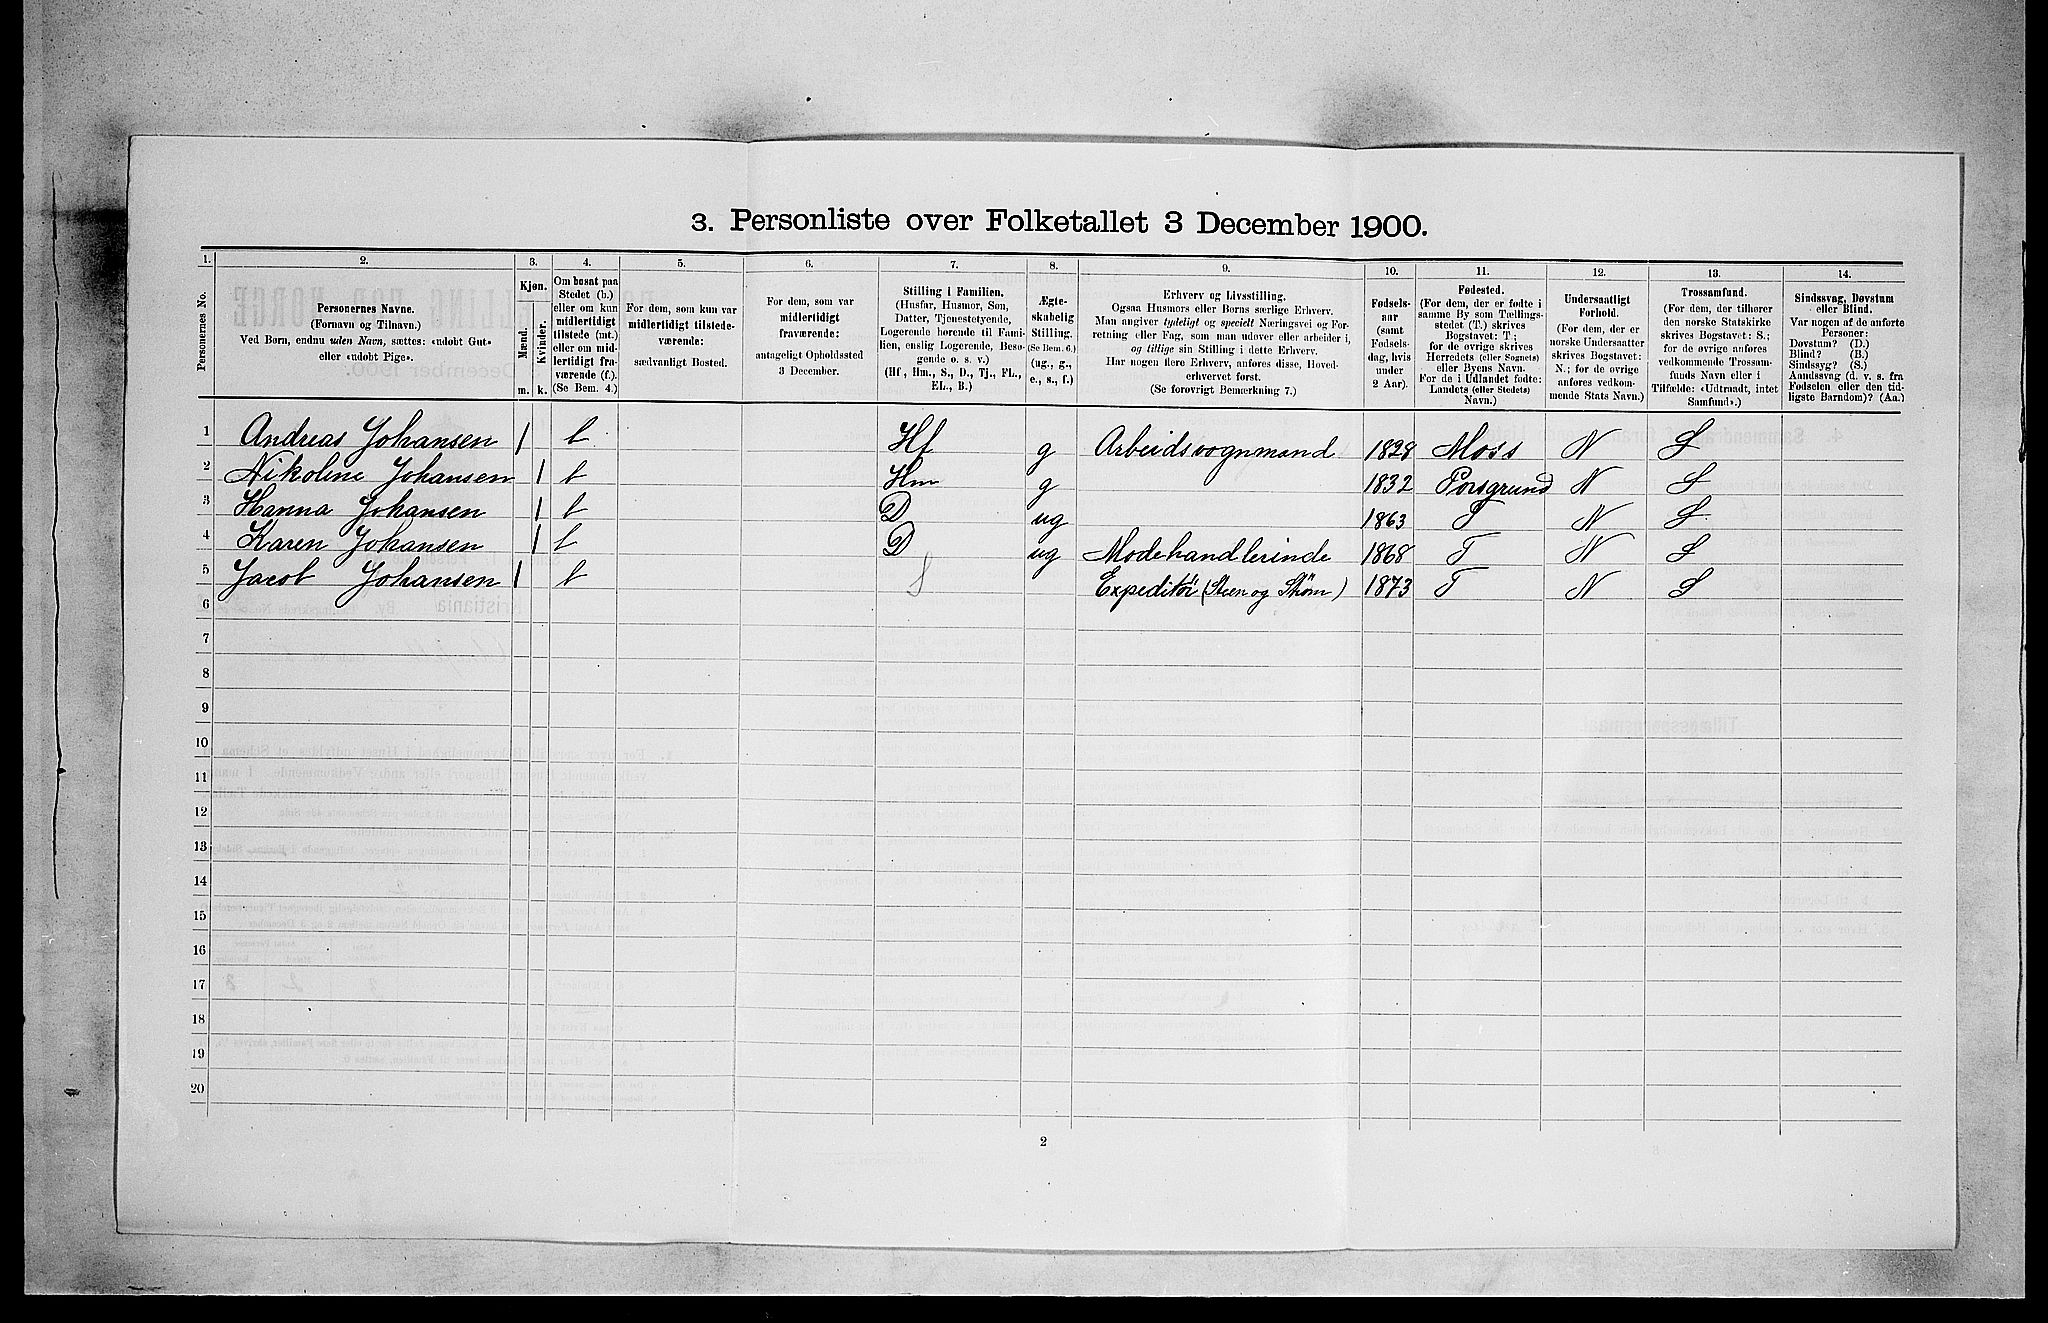 3. Personliste over Folketallet 3 December 1900.
1. 2. 3. 4. 5. 6. 7. 8. 9. 10. 11. 12. 13. 14.
Personernes No.
Personernes Navne.
(Fornavn og Tilnavn.)
Ved Børn, endnu uden Navn, sættes: «udøbt Gut»
eller «udøbt Pige».
Kjøn.
Mænd.
Kvinder.
m. k.
Om bosat paa
Stedet (b.)
eller om kun
midlertidigt
tilstede (mt.)
eller om mid-
lertidigt fra-
værende (f.).
(Se Bem. 4.)
For dem, som kun var
midlertidigt tilstede-
værende:
sædvanligt Bosted.
For dem, som var
midlertidigt
fraværende:
antageligt Opholdssted
3 December.
Stilling i Familien.
(Husfar, Husmor, Søn,
Datter, Tjenestetyende,
Logerende hørende til Fami-
lien, enslig Logerende, Besø-
gende o. s. v.)
(Hf., Hm., S., D., Tj., FL.,
EL., B.)
Ægte-
skabelig
Stilling.
(Se Bem. 6.)
(ug., g.,
e., s., f.)
Erhverv og Livsstilling.
Ogsaa Husmors eller Børns særlige Erhverv.
Man angiver tydeligt og specielt Næringsvei og For-
retning eller Fag, som man udøver eller arbeider i,
og tillige sin Stilling i dette Erhverv.
Har nogen flere Erhverv, anføres disse, Hoved-
erhvervet først.
(Se forøvrigt Bemerkning 7.)
Fødsels-
aar
(samt
Fødsels-
dag, hvis
under
2 Aar).
Fødested.
(For dem, der er fødte i
samme By som Tællings-
stedet (T.) skrives
Bogstavet: T.;
for de øvrige skrives
Herredets (eller Sognets)
eller Byens Navn.
For de i Udlandet fødte:
Landets (eller Stedets)
Navn.)
Undersaatligt
Forhold.
(For dem, der er
norske Undersaatter
skrives Bogstavet:
N.; for de øvrige
anføres vedkom-
mende Stats Navn.)
Trossamfund.
(For dem, der tilhører
den norske Statskirke
skrives Bogstavet: S.;
for de øvrige anføres
vedkommende Trossam-
funds Navn eller i
Tilfælde: «Udtraadt, intet
Samfund».)
Sindssvag, Døvstum
eller Blind.
Var nogen af de anførte
Personer:
Døvstum? (D.)
Blind? (B.)
Sindssyg? (S.)
Aandssvag (d. v. s. fra
Fødselen eller den tid-
ligste Barndom)? (Aa.)
1 Andreas Johansen 1 b Hf g Arbeidsvognmand 1828 Moss N S
2 Nikoline Johansen 1 b Hm g 1832 Porsgrund N S
3 Hanna Johansen 1 b D ug 1863 T N S
4 Karen Johansen 1 b D ug Modehandlerinde 1868 T N S
5 Jacob Johansen 1 b S Expeditør (Steen og Strøm) 1873 T N S
6
7
8
9
10
11
12
13
14
15
16
17
18
19
20
2